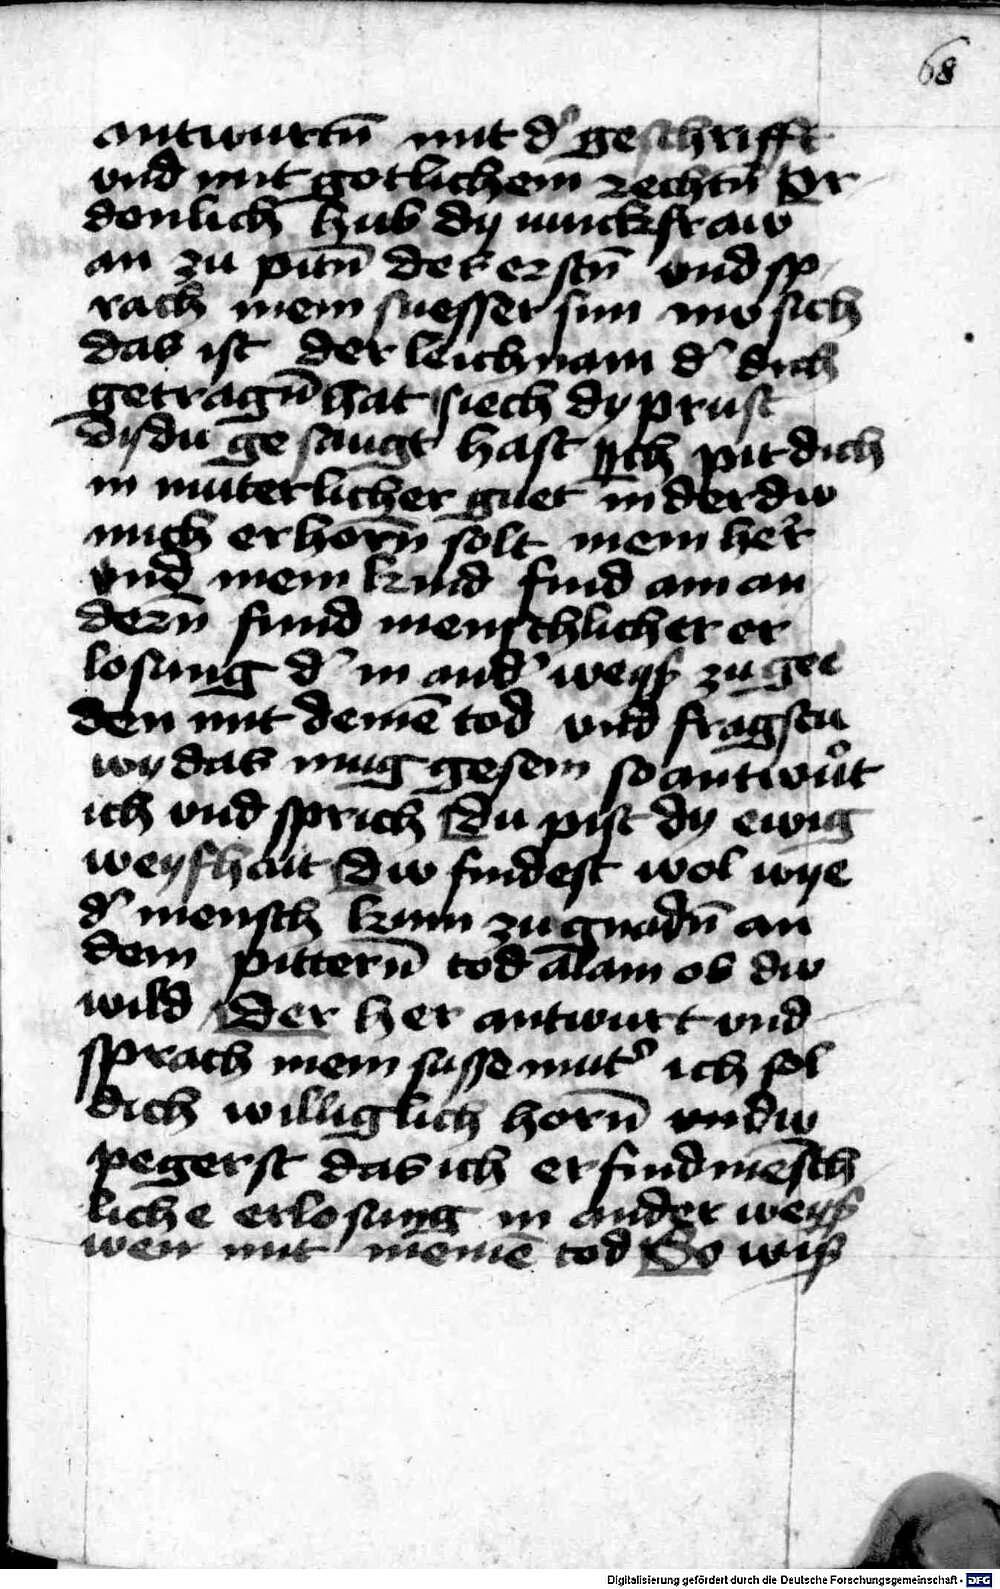 68
antwurtn̄ mit d' geschrifft
vnd mit gotlichem rechtn̄ Or
denlich hub dy iunckfraw
an zu pitn̄ des erstn̄ vnd sp
rach mein suesser sun nw sich
das ist der leichnam d' dich
getragn̄ hat siech dy prust
dysdu gesaugt hast Ich pit dich
in muterlicher guet in der dw
mich erhorn̄ solt mein her
vnd mein kind find ain an
dern̄ fund menschlicher er
losung d' in and' weyß zu gee
den mit deinē tod vnd fragstu
wy das mug gesein so antwurt
ich vnd sprich Du pist dy ewig
weyshait Dw findest wol wye
d' mensch kum zu gnadn̄ an
dem pittern̄ tod alain ob dw
wild Der her antwurt vnd
sprach mein susse mut' ich sol
dich williglich horn̄ vn dw
pegerst das ich erfind mēsch
liche erlosung in ander weyß
wen mit meinē tod So wiß
Digitalisierung gefördert durch die Deutsche Forschungsgemeinschaft - DFG